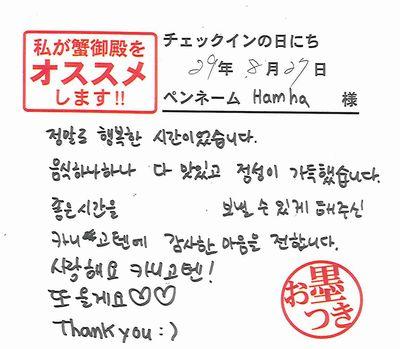 私が蟹御殿を
オススメ
します!!
チェックインの日にち
29年 8月27日
ペンネーム Hamha 様
정말로 행복한 시간이었습니다.
음식하나하나 다 맛있고 정성이 가득했습니다.
좋은시간을 보낼 수 있게 해주신
카니고텐에 감사한 마음을 전합니다.
사랑해요 카니고텐!
또 올게요♡♡
Thank you :)
お墨つき